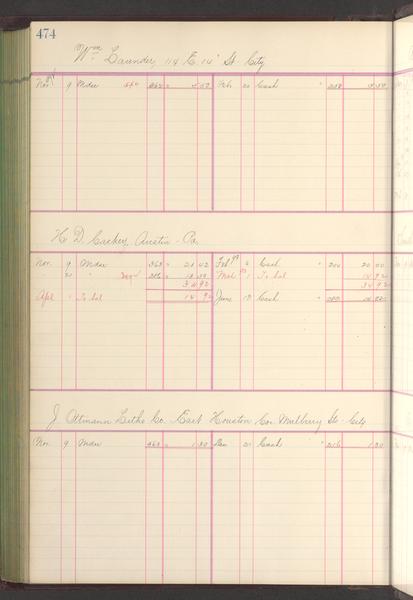 474
Wm Launder, 114 E. 14" St. City
Nov. 9 Mdse 363 Feb. 20 Cash
H. D. Caskey, Austin - Pa.
Nov. 9 Mdse 363 21 42 Feb 4 Cash 204 20 00
20 " 13 50 Mch 1 To bal 14 92
34 92 34 92
Apl 1 To bal 14 92 June 13 Cash 14 92
J. Ottmann Litho Co. East Houston Cor. Mulbery St. City
Nov. 9 Mdse 363 1 30 Dec 20 Cash 216 1 30